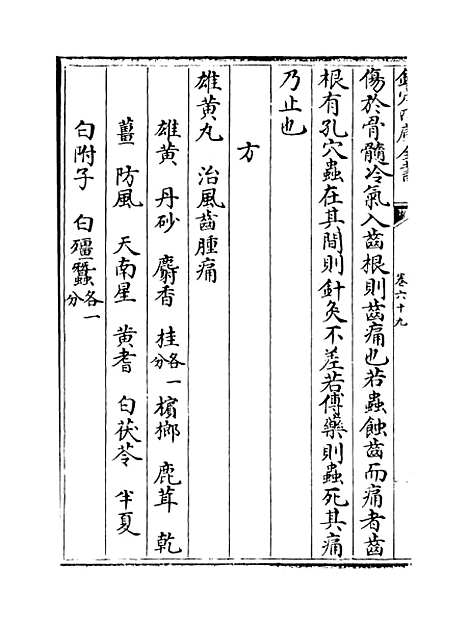 欽定四庫全書
卷六十九
傷於骨髓冷氣入齒根則齒痛也若蟲蝕齒而痛者齒
根有孔穴蟲在其間則針灸不差若傅藥則蟲死其痛
乃止也
方
雄黄丸 治風齒腫痛
雄黄 丹砂 麝香 桂各一分 檳榔 鹿茸 乾
薑 防風 天南星 黄耆 白茯苓 半夏
白附子 白殭蠶各一分